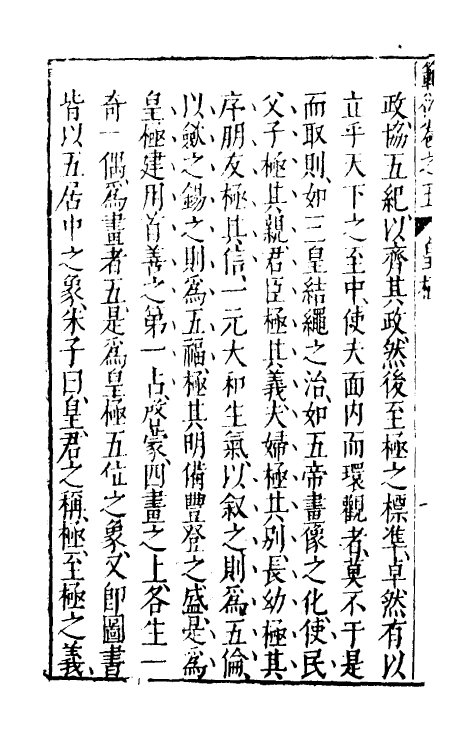 政協五紀以齊其政然後至極之標準卓然有以
立乎天下之至中使夫面内而環觀者莫不于是
而取則如三皇結繩之治如五帝畫像之化使民
父子極其親君臣極其義夫婦極其别長幼極其
序朋友極其信一元大和生氣以叙之則為五倫
以斂之錫之則為五福極其明備豐登之盛是為
皇極建用首善之第一占啟蒙四畫之上各生一
奇一偶為畫者五是為皇極五位之象又即圖書
皆以五居中之象朱子曰皇君之稱極至極之義